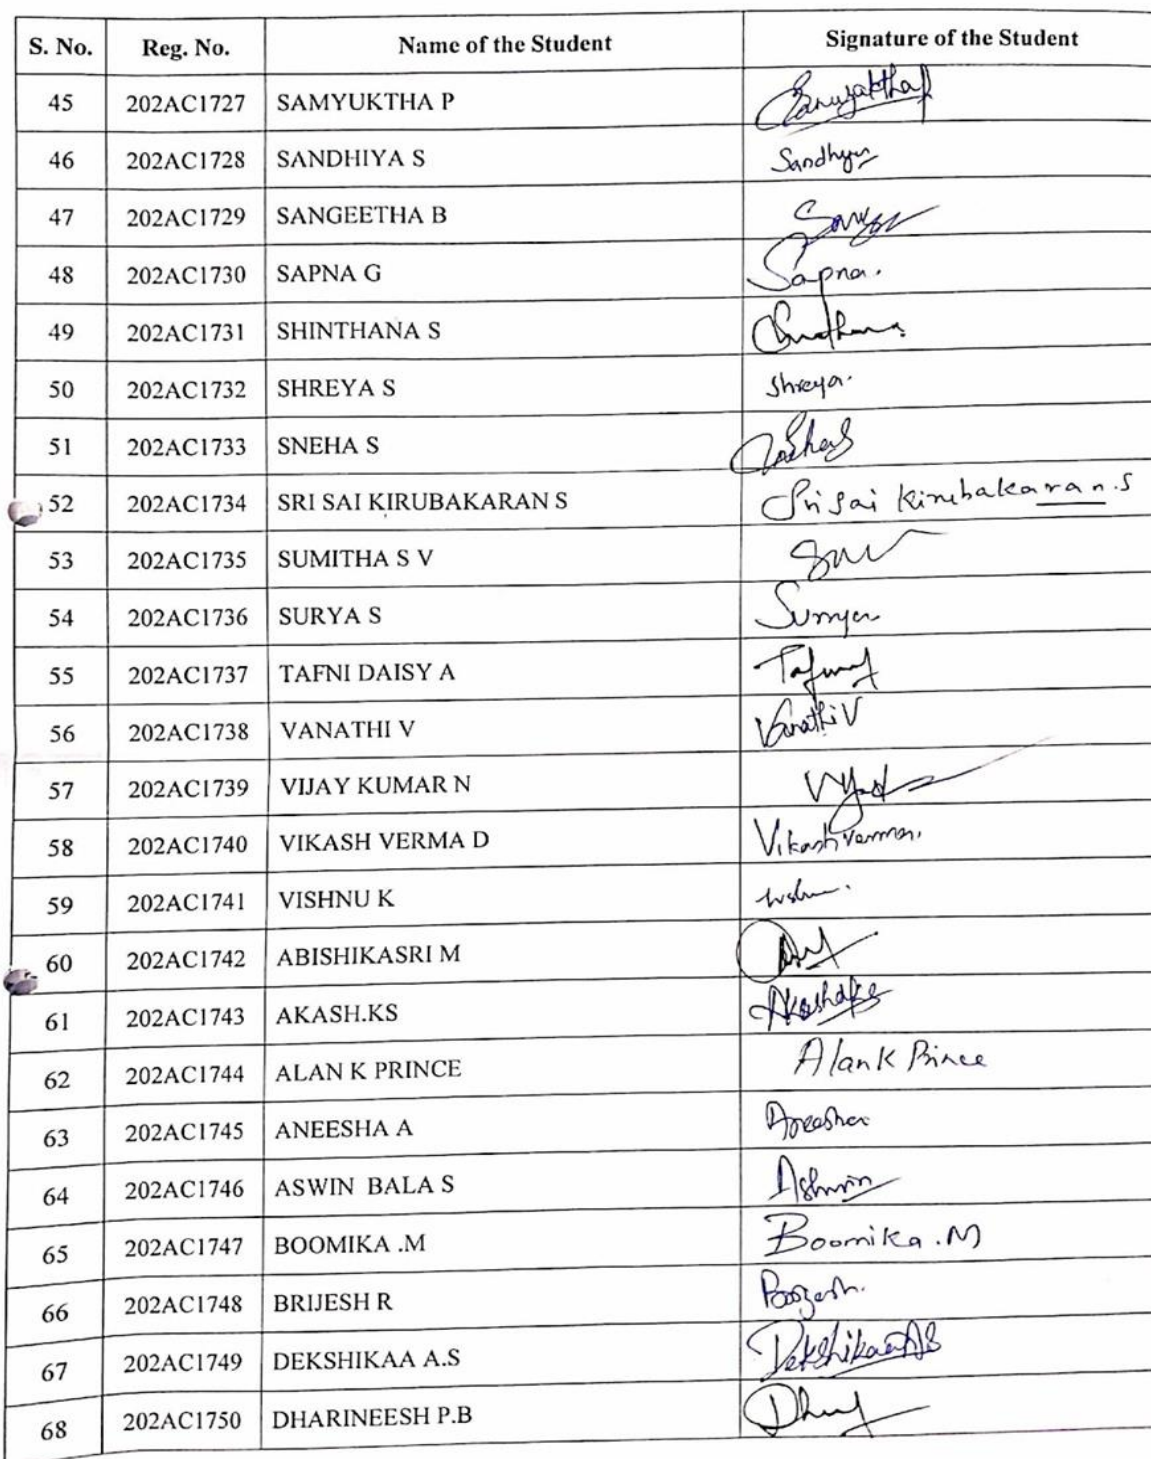 S. No. Reg. No. Name of the Student Signature of the Student
45 202AC1727 SAMYUKTHA P
46 202AC1728 SANDHIYA S Sandhya
47 202AC1729 SANGEETHA B
48 202AC1730 SAPNA G Sapna.
49 202AC1731 SHINTHANA S
50 202AC1732 SHREYA S Shreya.
51 202AC1733 SNEHA S
52 202AC1734 SRI SAI KIRUBAKARAN S Sri Sai Kirubakaran.S
53 202AC1735 SUMITHA S V
54 202AC1736 SURYA S Surya
55 202AC1737 TAFNI DAISY A
56 202AC1738 VANATHI V Vanathi V
57 202AC1739 VIJAY KUMAR N
58 202AC1740 VIKASH VERMA D Vikash verma.
59 202AC1741 VISHNU K
60 202AC1742 ABISHIKASRI M
61 202AC1743 AKASH.KS
62 202AC1744 ALAN K PRINCE Alan K Prince
63 202AC1745 ANEESHA A Aneesha
64 202AC1746 ASWIN BALA S Ashwin
65 202AC1747 BOOMIKA .M Boomika .M
66 202AC1748 BRIJESH R
67 202AC1749 DEKSHIKAA A.S DekshikaaAS
68 202AC1750 DHARINEESH P.B